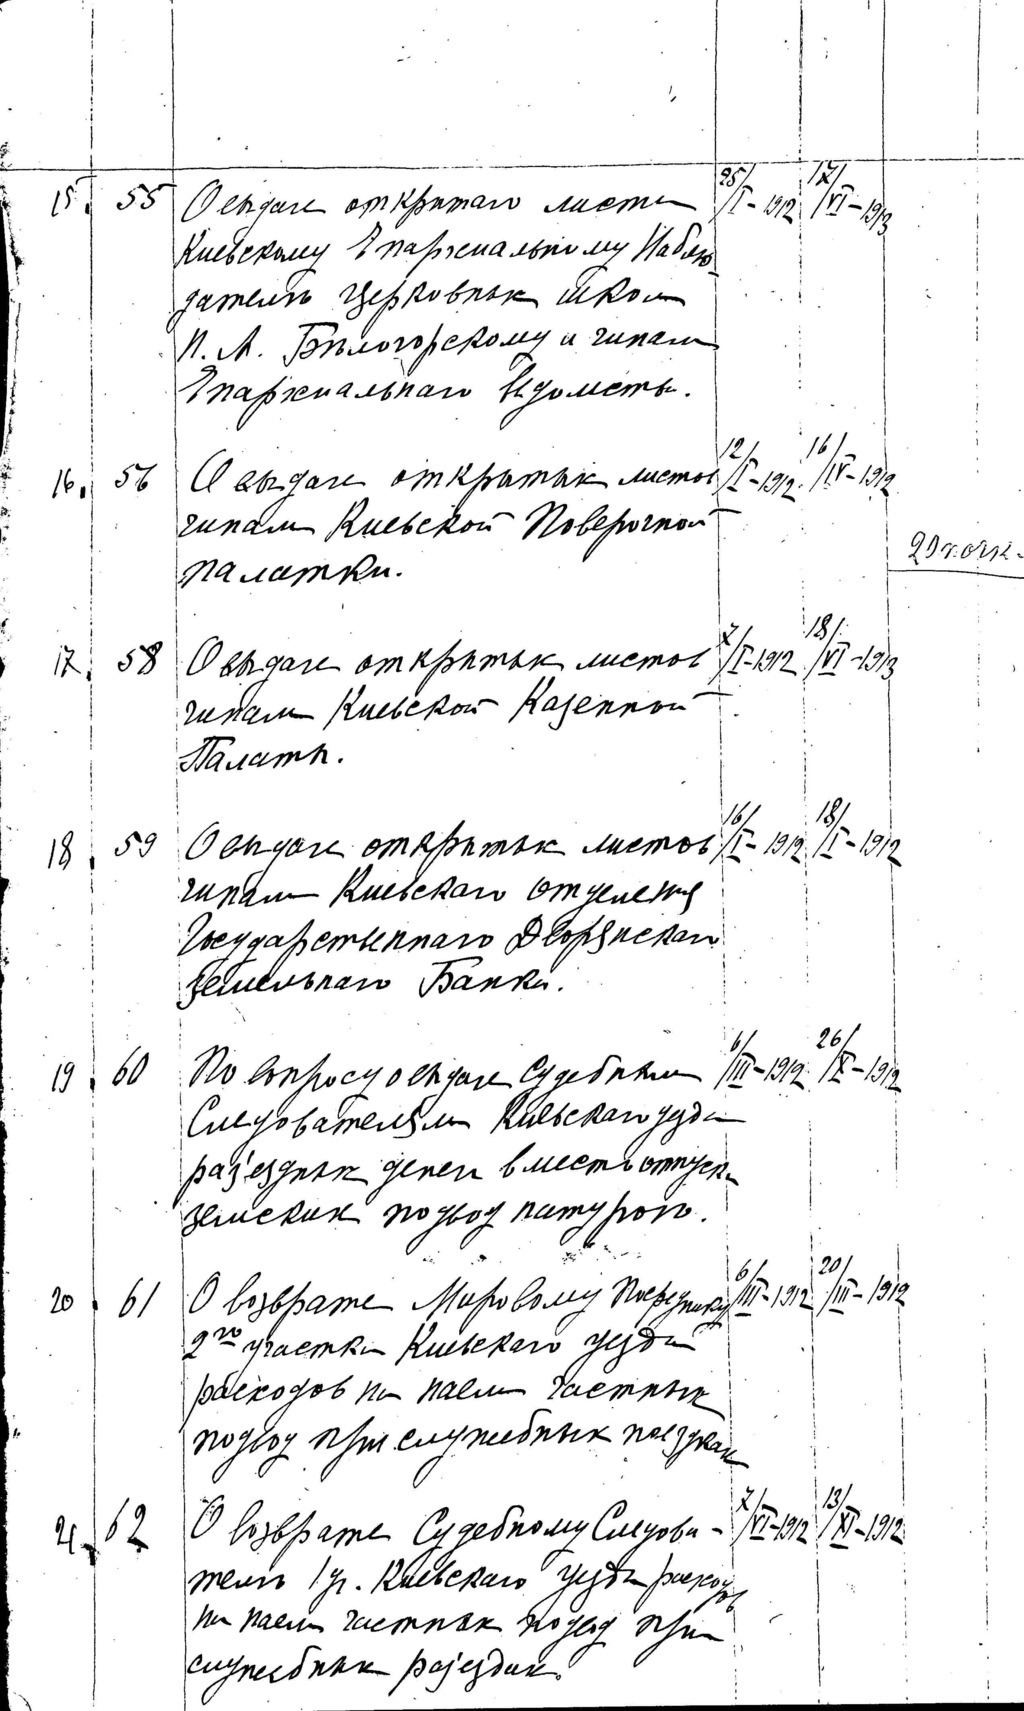 15. 55 О выдаче открытаго листа 25/I-1912 17/VI-1913
Киевскому Епархиальному Наблю-
дателю церковных школ
П. А. Бѣлогорскому и чинам
Епархиальнаго вѣдомства.
16. 56 О выдаче открытых листов 12/I-1912 16/IV-1912
чинам Киевской Поверочной
палатки.
17. 58 О выдаче открытых листов 7/I-1912 18/VI-1913
чинам Киевской Казенной
Палаты.
18. 59 О выдаче открытых листов 16/I-1912 18/I-1912
чинам Киевскаго отделения
Государственнаго Дворянскаго
земельнаго Банка.
19. 60 По вопросу о выдаче Судебным 6/III-1912 26/X-1912
Следователям Киевскаго уезда
раз'ездных денег вместо отпуска
земских подвод натурою.
20. 61 О возврате Мировому Посреднику 6/III-1912 20/III-1912
2го участка Киевскаго уезда
расходов на наем частных
подвод при служебных поездках
21. 62 О возврате Судебному Следова- 7/VI-1912 13/XI-1912
телю 1 уч. Киевскаго уезда расходов
на наем частных подвод при
служебных раз'ездах.